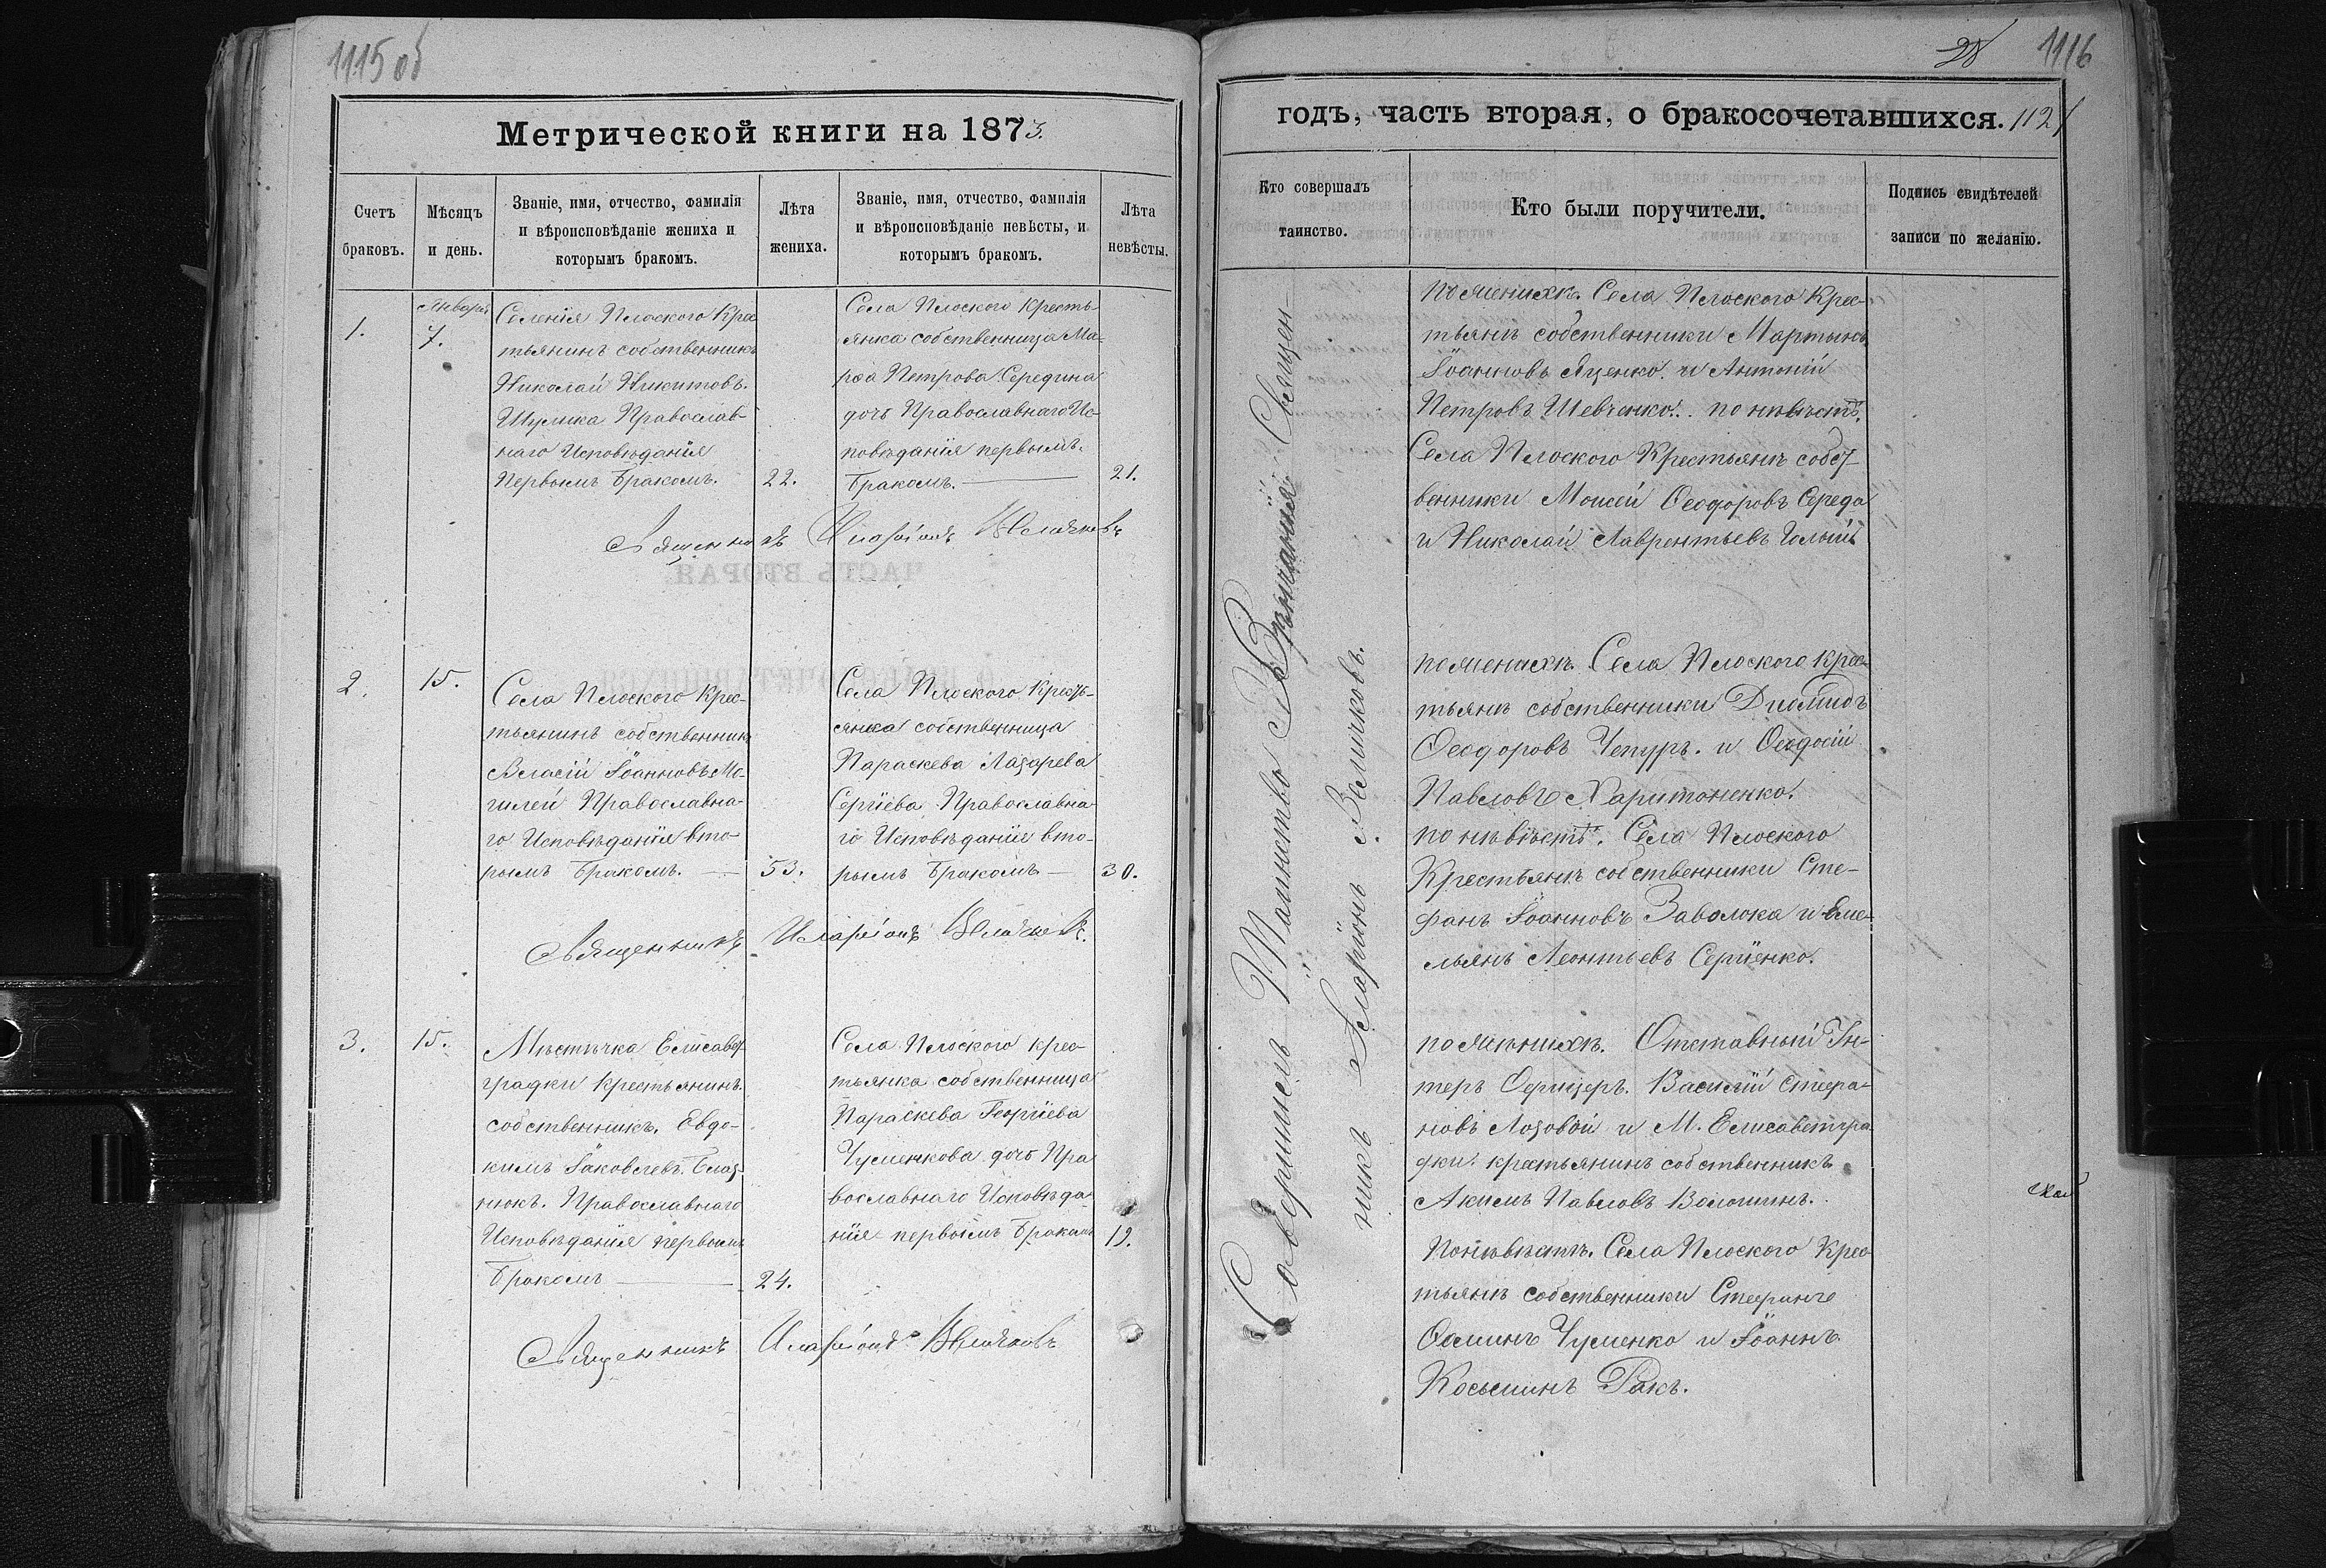 1115 об
Метрической книги на 1873.
Счетъ браковъ.
Мѣсяцъ и день.
Званіе, имя, отчество, фамилія и вѣроисповѣданіе жениха и которымъ бракомъ.
Лѣта жениха.
Званіе, имя, отчество, фамилія и вѣроисповѣданіе невѣсты, и которымъ бракомъ.
Лѣта невѣсты.
1.
Январь
7.
Селенія Плоского Крес
тьянинъ собственникъ
Николай Никитовъ.
Православ-
наго Исповѣданія
Первымъ Бракомъ.
22.
Села Плоского Кресть-
янка собственница Ма-
рѳа Петрова Середина
дочь Православнаго Ис-
повѣданія первымъ.
Бракомъ.
21.
Священникъ Иларіонъ Величковъ
2.
15.
Села Плоского Крес-
тьянинъ собственникъ
Власій Іоанновъ Мо-
гилей Православна-
го Исповѣданія вто-
рымъ Бракомъ.
53.
Села Плоского Кресть-
янка собственница
Параскева Лазарева
Сергіева Православна
го Исповѣданія вто-
рымъ Бракомъ
30.
Священникъ Иларіонъ Величковъ.
3.
15.
Мѣстечка Елисавет-
градки крестьянинъ.
собственникъ. Евдо-
кимъ Іаковлевъ.
нюкъ. Православнаго
Исповѣданія первымъ
Бракомъ
24.
Села Плоского крес-
тьянка собственница
Параскева Георгіева
Чуменкова дочь Пра
вославнаго Исповѣда-
нія первымъ Бракомъ
19.
Священникъ Иларіонъ Величковъ
28 1116
годъ, часть вторая, о бракосочетавшихся. 1121
Кто совершалъ таинство.
Кто были поручители.
Подпись свидѣтелей записи по желанію.
Совершилъ Таинство Вѣнчанія Священ-
никъ Иларіонъ Величковъ.
По женихѣ. Села Плоского Крес-
тьянѣ собственники Мартынъ
Іоанновъ Яценко. и Антоній
Петровъ Шевченко. по невѣстѣ.
Села Плоского Крестьянѣ собст-
венники Моисей Ѳеодоровъ Середа
и Николай Лаврентьевъ Голый
по женихѣ. Села Плоского крес-
тьянѣ собственники Диомидъ
Ѳеодоровъ Чепуръ. и Ѳеодосій
Павловъ Харитоненко.
по невѣстѣ. Села Плоского
Крестьянѣ собственники Сте-
фанъ Іоанновъ Заволока и Еме-
льянъ Леонтьевъ Сергіенко.
по женихѣ. Отставный Ун-
теръ Офицеръ. Василій Стефа-
новъ Лозовой и М. Елисаветгра-
дки. крестьянинъ собственникъ
Акимъ Павловъ Волошинъ.
По невѣстѣ. Села Плоского Крес
тьянѣ собственники Стефанъ
Ѳоминъ Чуменко и Іоаннъ
Косьминъ Ракъ.